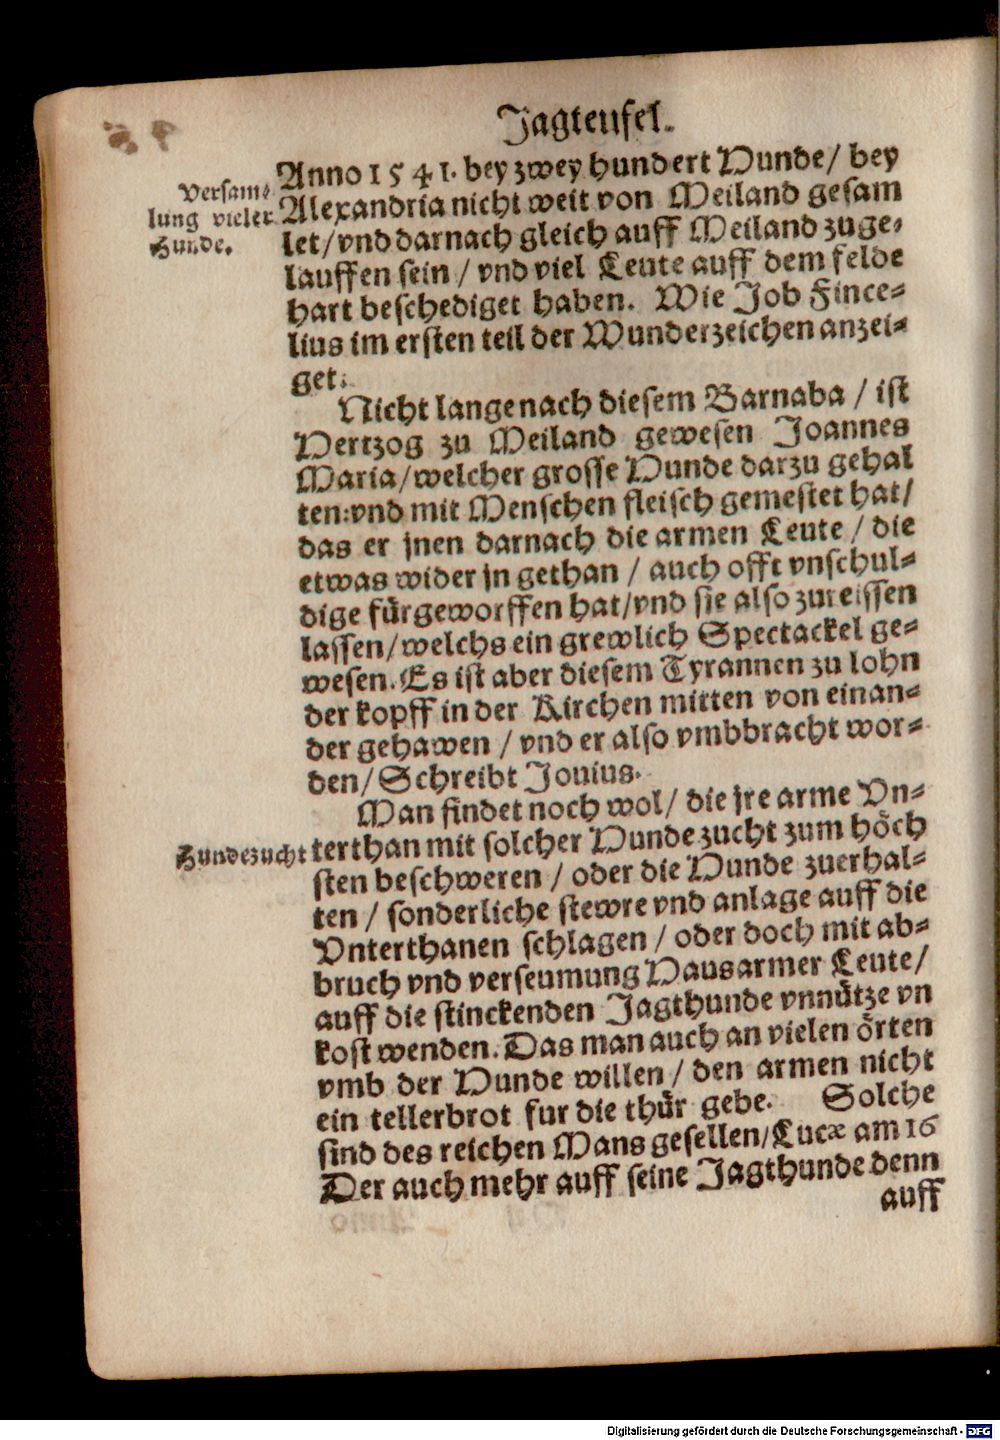 Jagteufel.
Anno 1541. bey zwey hundert Hunde/ bey
Versam-
lung vieler
Hunde.
Alexandria nicht weit von Meiland gesam
let/ vnd darnach gleich auff Meiland zuge-
lauffen sein / vnd viel Leute auff dem felde
hart beschediget haben. Wie Job Fince-
lius im ersten teil der Wunderzeichen anzei-
get.
Nicht lange nach diesem Barnaba / ist
Hertzog zu Meiland gewesen Joannes
Maria/ welcher grosse Hunde darzu gehal
ten: vnd mit Menschen fleisch gemestet hat/
das er jnen darnach die armen Leute / die
etwas wider jn gethan / auch offt vnschul-
dige fürgeworffen hat/ vnd sie also zureissen
lassen/ welchs ein grewlich Spectackel ge-
wesen. Es ist aber diesem Tyrannen zu lohn
der kopff in der Kirchen mitten von einan-
der gehawen / vnd er also vmbbracht wor-
den/ Schreibt Jouius.
Man findet noch wol/ die jre arme Vn-
Hundezucht
terthan mit solcher Hunde zucht zum höch
sten beschweren / oder die Hunde zuerhal-
ten / sonderliche stewre vnd anlage auff die
Vnterthanen schlagen / oder doch mit ab-
bruch vnd verseumung Hausarmer Leute/
auff die stinckenden Jagthunde vnnütze vn
kost wenden. Das man auch an vielen örten
vmb der Hunde willen / den armen nicht
ein tellerbrot fur die thür gebe. Solche
sind des reichen Mans gesellen/ Lucæ am 16
Der auch mehr auff seine Jagthunde denn
auff
Digitalisierung gefördert durch die Deutsche Forschungsgemeinschaft - DFG